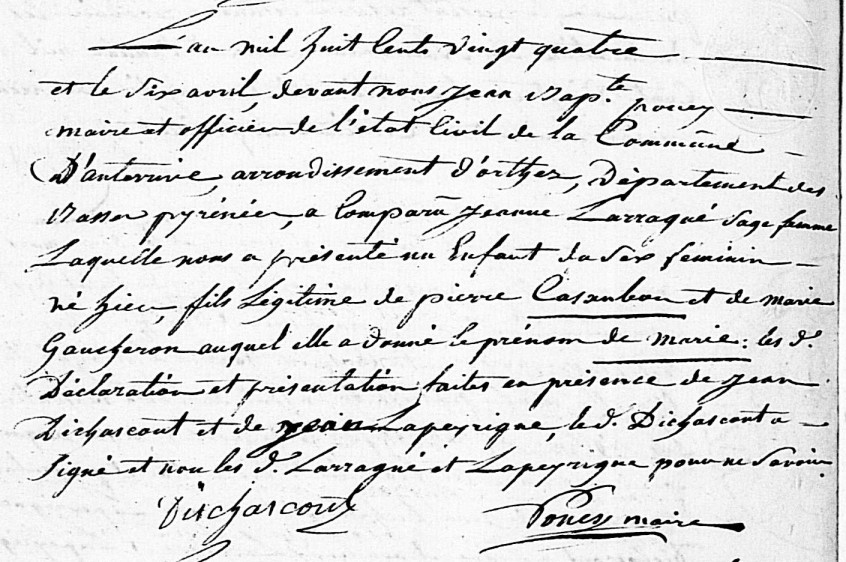 L'an mil huit Cents vingt quatre
et le Six avril, devant nous Jean Bap.te pouey
maire et officier de l'état Civil de la Commune
D'auterrive, arrondissement d'orthez, Département des
Basses pyrénées, a Comparu Jeanne Larraqué Sage femme
Laquelle nous a présenté un Enfant du Sex féminin
né hier, fils Légitime de pierre Casaubon et de marie
Gaucheron auquel elle a donné le prénom de marie: les d.
Déclaration et présentation faites en présence de Jean
Dichascout et de Jean Lapeyrigne, le d. Dichascout a
Signé et non les d. Larraqué et Lapeyrigne pour ne Savoir.
Dischascout Pouey maire